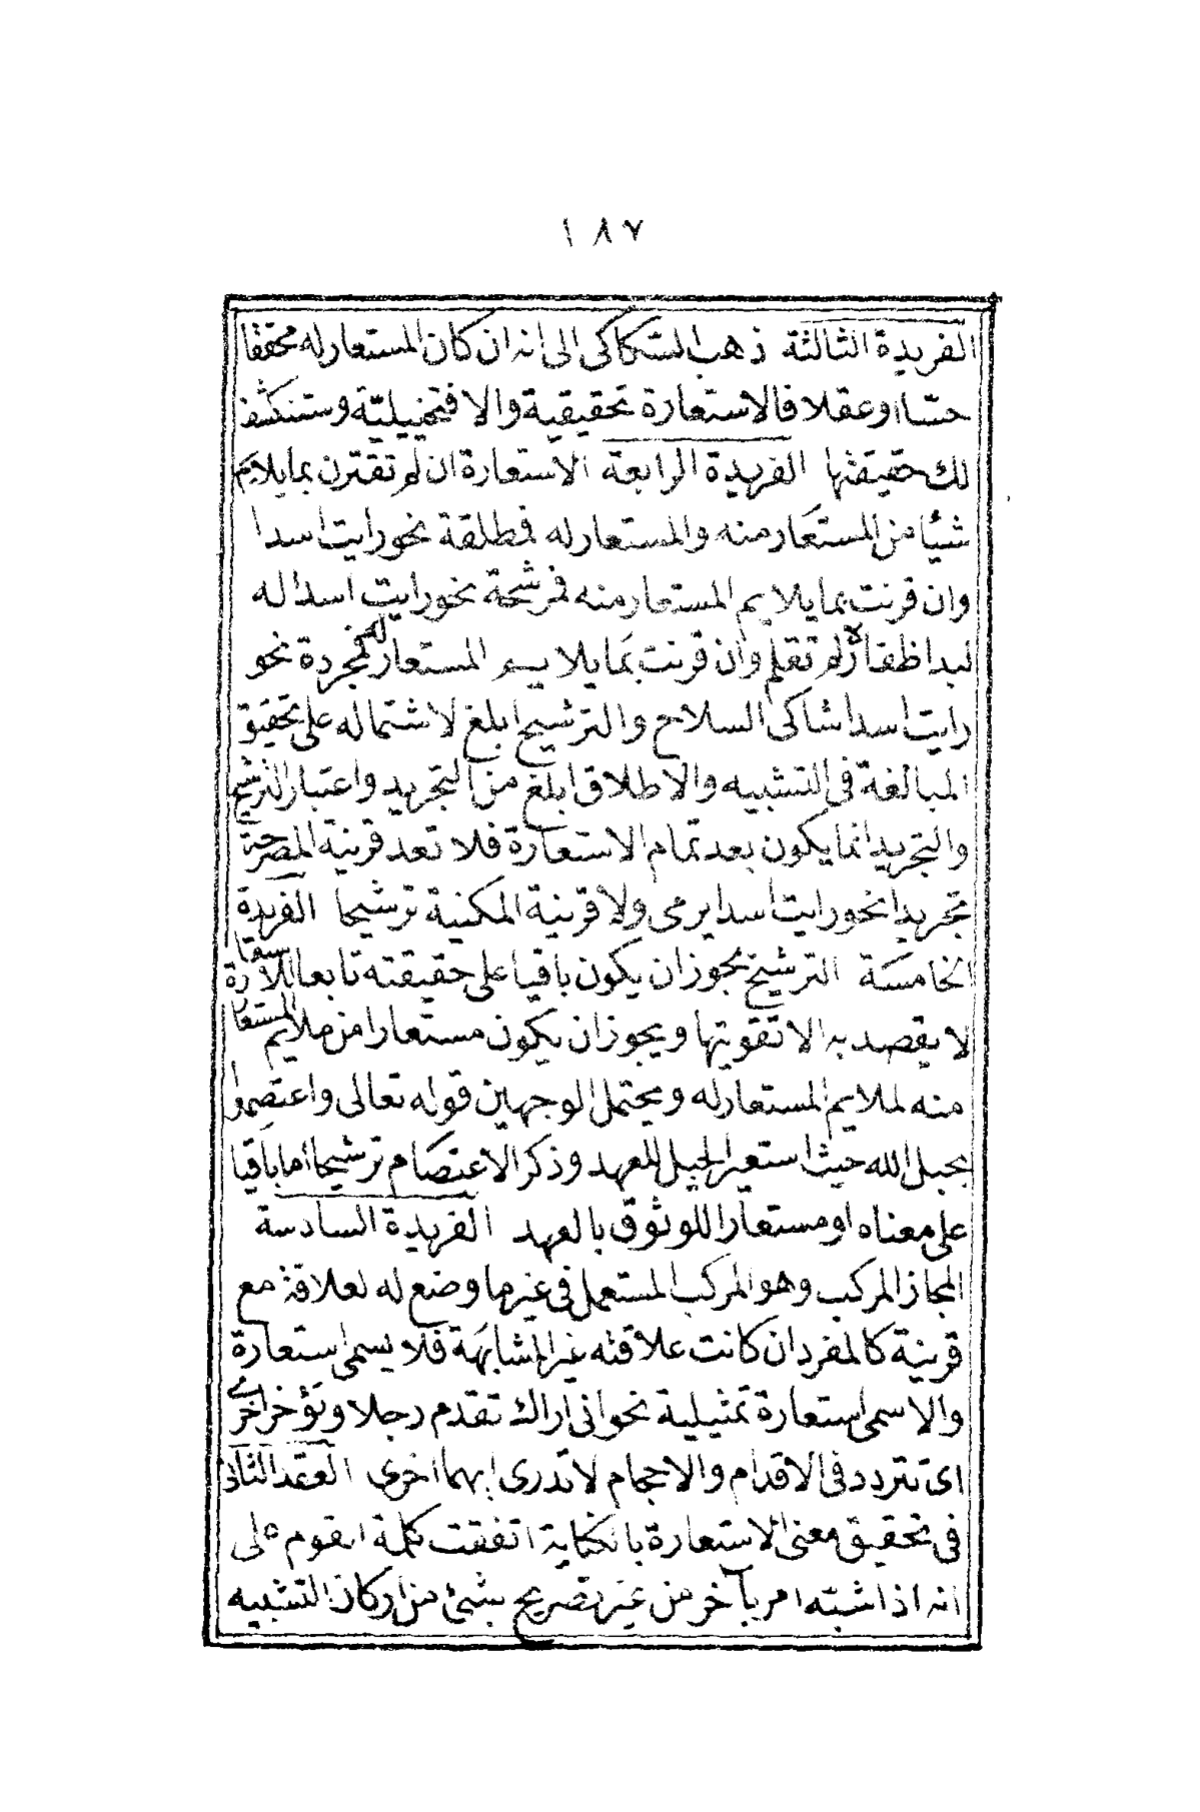 ١٨٧
الفريدة الثالثة ذهب السكاكى الى انه ان كان المستعار له محققا
حسّا او عقلا فالاستعارة تحقيقية والا فتخييليّة وستنكشف
لك حقيقتها الفريدة الرابعة الاستعارة ان لم تقترن بما يلايم
شيئا من المستعار منه والمستعار له فمطلقة نحو رايت اسدا
وان قرنت بما يلايم المستعار منه فمرشحة نحو رايت اسدا له
لبد اظفاره لم تقلم وان قرنت بما يلايم المستعار له فمجردة نحو
رايت اسدا شاكى السلاح والترشيح ابلغ لاشتماله على تحقيق
المبالغة فى التشبيه والاطلاق ابلغ من التجريد واعتبار الترشيح
والتجريد انما يكون بعد تمام الاستعارة فلا تعد قرينة المصرحة
تجريدا نحو رايت اسدا يرمى ولا قرينة المكنية ترشيحا الفريدة
الخامسة الترشيح يجوز ان يكون باقيا على حقيقته تابعا للاستعارة
لا يقصد به الا تقويتها ويجوز ان يكون مستعارا من ملايم المستعار
منه لملايم المستعار له ويحتمل الوجهين قوله تعالى واعتصموا
بحبل الله حيث استعير الحبل للعهد وذكر الاعتصام ترشيحا اما باقيا
على معناه او مستعارا للوثوق بالعهد الفريدة السادسة
المجاز المركب وهو المركب المستعمل فى غير ما وضع له لعلاقة مع
قرينة كالمفرد ان كانت علاقته غير المشابهة فلا يسمى استعارة
والا سمى استعارة تمثيلية نحو انى اراك تقدم رجلا وتؤخر اخرى
اى تتردد فى الاقدام والاحجام لا تدرى ايهما اخرى العقد الثانى
فى تحقيق معنى الاستعارة بالكناية اتفقت كلمة القوم على
انه اذا شبّه امر بآخر من غير تصريح بشئ من اركان التشبيه